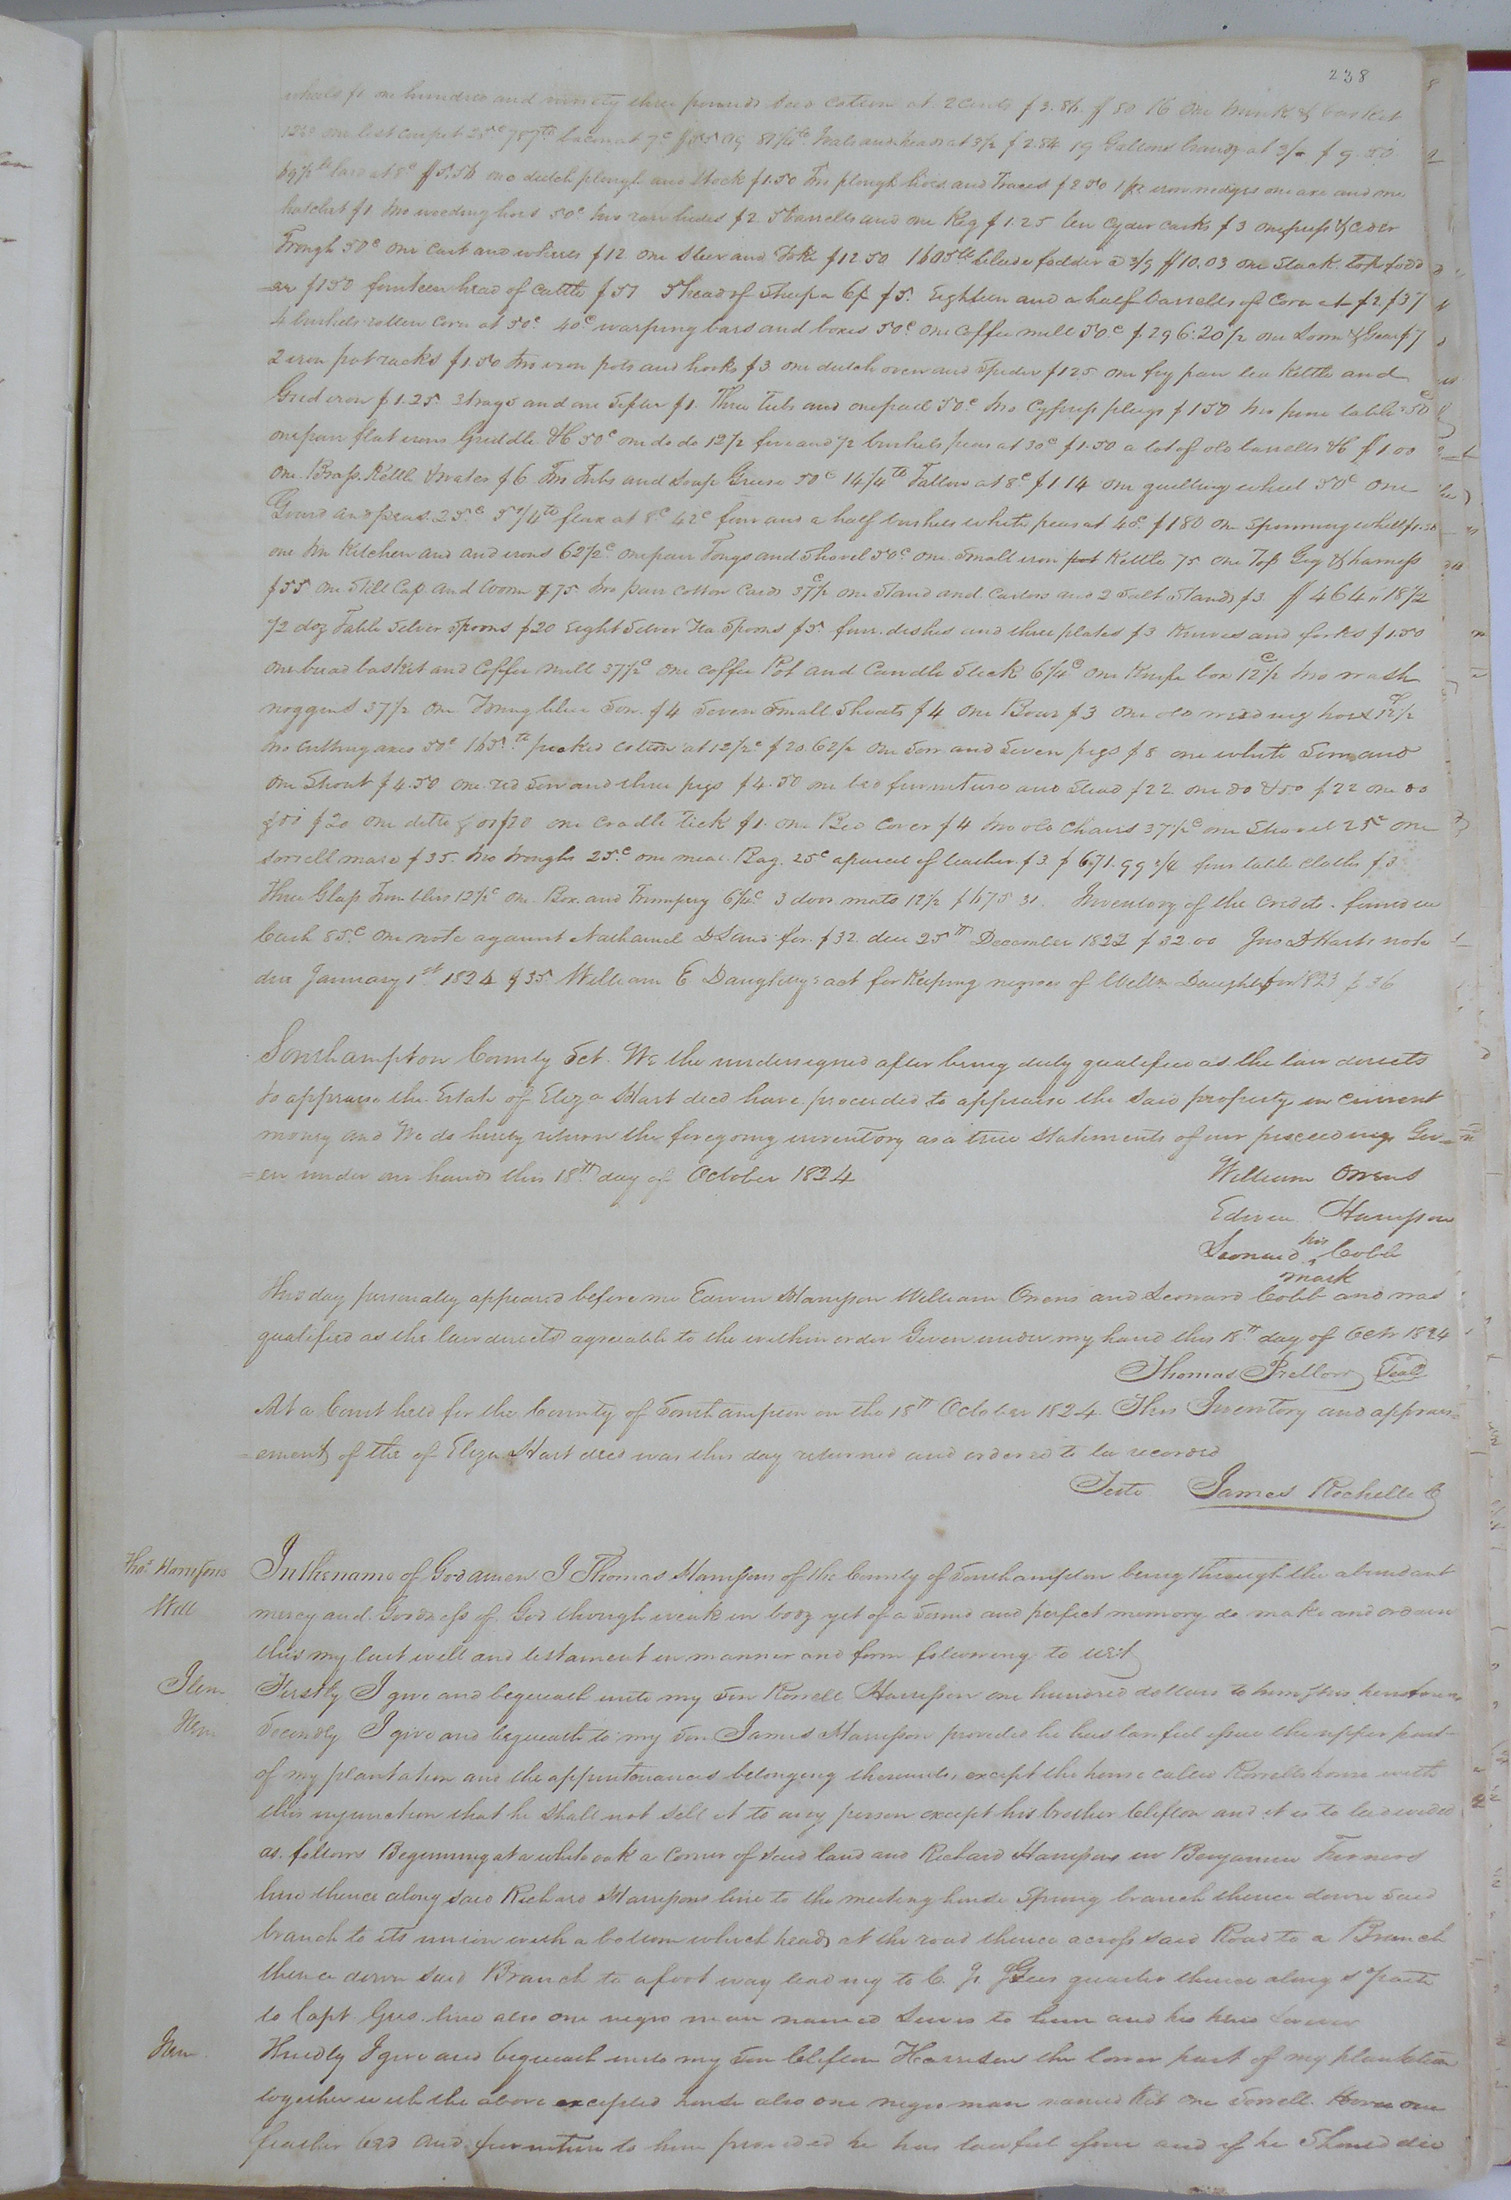 238
wheels $1 one hundred and ninety three pounds seed cotton at 2 cents $3.86 $80 16 one trunk & basket
one best carpet 25c 787lb bacon at 7c $55.09 81 1/4lb Fats and heads at 3 1/2 $2.84 19 Gallons brandy at 3/- $9.50
69 1/2lb lard at 8c $5.56 one dutch plough and stock $1.50 two plough hoes and Traces $2.50 1 pr iron wedges one axe and one
hatchet $1 two weeding hoes 50c two raw hides $2 5 barrells and one Keg $1.25 ten Cyder casks $3 one press & Cider
Trough 50c one cart and wheels $12 one Steer and Yoke $12 50 1605lb blade fodder @ 3/9 $10.03 one Stack top fodd
=er $1 50 fourteen head of Cattle $57 5 head of Sheep @ 6/ $5. Eighteen and a half barrells of Corn at $2 $37
4 bushels rotten Corn at 10c 40c warping bars and boxes 50c One Coffee mill 50c $296.20 1/2 one Loom & Gear $7
2 iron pot racks $1.50 two iron pots and hooks $3 one dutch oven and Spider $1 25 one fry pan tea Kettle and
Grid iron $1.25 3 trays and one Sifter $1. Three Tubs and one pail 50c two Cypress plugs $1 50 two pine tables 50c
one pair flat irons Griddle &c 50c one do do 12 1/2 five and 1/2 bushels peas at 30c $1.50 a lot of old barrells &c $1.00
One Brass Kettle & water $6 Two Tubs and Soap Grease 50c 14 1/4lb Tallow at 8c $1 14 one quilling wheel 50c One
Gourd and peas 25c 5 1/4lb flax at 8c 42c four and a half bushels white peas at 40c $1 80 one Spinning wheel $1.50
one Kitchen and and irons 62 1/2c one pair Tongs and Shovel 50c one Small iron pot Kettle 75 one Top Gig & harness
$55 one Still Cap and Worm $75 two pair cotton Cards 37 1/2c one Stand and Castors and 2 Salt Stands $3 $464.18 1/2
1/2 doz Table Silver Spoons $20 Eight Silver Tea Spoons $5 four dishes and three plates $3 Knives and forks $1.50
one bread basket and Coffee mill 37 1/2c one Coffee Pot and Candle Stick 6 1/4c One Knife box 12 1/2c two wash
noggins 37 1/2 one Young blue Sow $4 Seven Small Shoats $4 one Boar $3 one old weeding hoe 12 1/2c
two cutting axes 50c 165lb picked cotton at 12 1/2c $20 62 1/2 One Sow and Seven pigs $8 one white Sow and
One Shoat $4.50 one red Sow and three pigs $4.50 one bed furniture and Stead $22 one do & do $22 one do
& do $20 one ditto & do $20 one Cradle Tick $1 one Bed Cover $4 two old Chairs 37 1/2c one Shovel 25c one
Sorrell mare $35 two troughs 25c one meal Bag 25c a parcel of leather $3 $671.99 3/4 four table cloths $3
Three Glass Tumblers 12 1/2c One Box and Trumpery 6 1/4c 3 door mats 12 1/2 $675 31. Inventory of the Credits found in
Cash 85c One note against Nathaniel D Land for $32 due 25th December 1822 $32.00 Jno D Harts note
due January 1st 1824 $35 William E Daughtrys act for Keeping negroes of Willm Daughty for 1823 $36
Southampton County Sct. We the undersigned after being duly qualified as the law directs
to appraise the Estate of Eliza Hart decd have proceeded to appraise the said property in current
money and We do hereby return the foregoing inventory as a true Statements of our proceedings Giv=
=en under our hands this 18th day of October 1824
William Owens
Edwin Harrisson
his
Leonard Cobb
mark
This day personally appeared before me Edwin Harrisson William Owens and Leonard Cobb and was
qualified as the law directs agreeable to the within order Given under my hand this 18th day of Octr 1824
Thomas Pretlow Seal
At a Court held for the County of Southampton on the 18th October 1824 This Inventory and apprais=
=ement of the of Eliza Hart decd was this day returned and ordered to be recorded
Teste James Rochelle C
Thos Harrissons
Will
In the name of God amen I Thomas Harrisson of the County of Southampton being through the abundant
mercy and Goodness of God though weak in body yet of a Sound and perfect memory do make and ordain
this my last will and testament in manner and form following to wit
Item Firstly I give and bequeath unto my Son Rowell Harrisson one hundred dollars to him & his heirs forever
Item Secondly I give and bequeath to my Son James Harrisson provided he has lawful issue the upper part
of my plantation and the appurtenances belonging thereunto except the house called Rowells house with
this injunction that he shall not sell it to any person except his brother Clifton and it is to be divided
as follows Beginning at a white oak a corner of said land and Richard Harrissons in Benjamin Turners
line thence along said Richard Harrissons line to the meeting house Spring branch thence down said
branch to its union with a bottom which heads at the road thence across said Road to a Branch
thence down said Branch to a foot way leading to C. Grees quarter thence along sd path
to Capt Grees line also one negro man named Lewis to him and his heirs forever
Item Thirdly I give and bequeath unto my Son Clifton Harrison the lower part of my plantation
together with the above excepted house also one negro man named Kit one Sorrell Horse one
feather bed and furniture to him provided he has lawful issue and if he Should die